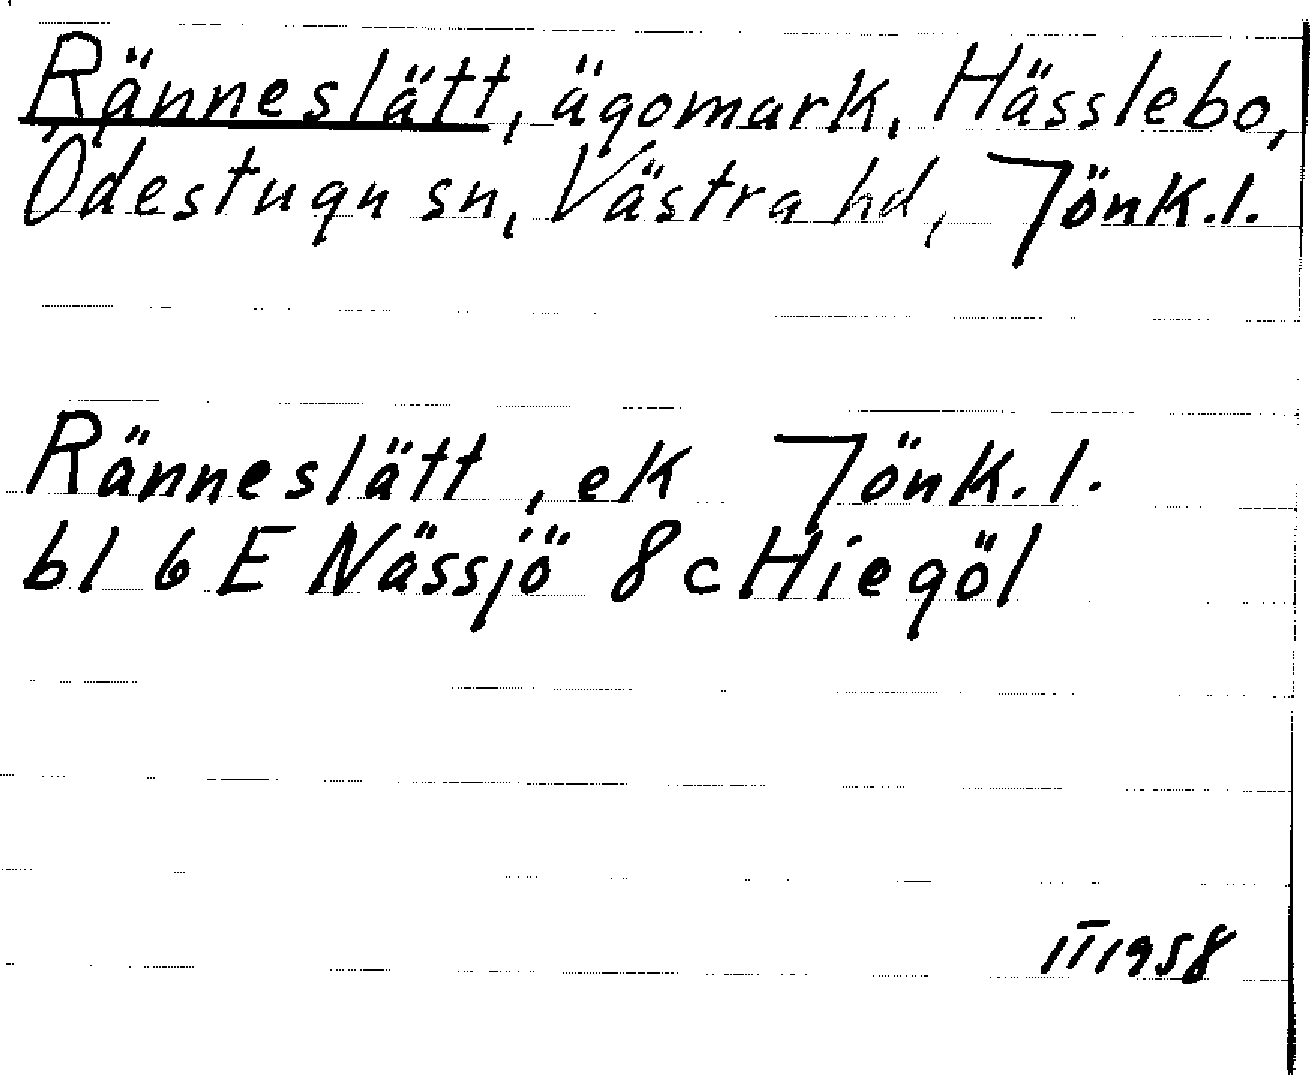 Ränneslätt, ägomark, Hässlebo,
Ödestugu sn, Västra hd, Jönk.l.
Ränneslätt, ek Jönk.l.
bl 6 E Nässjö 8 c Hiegöl
1958